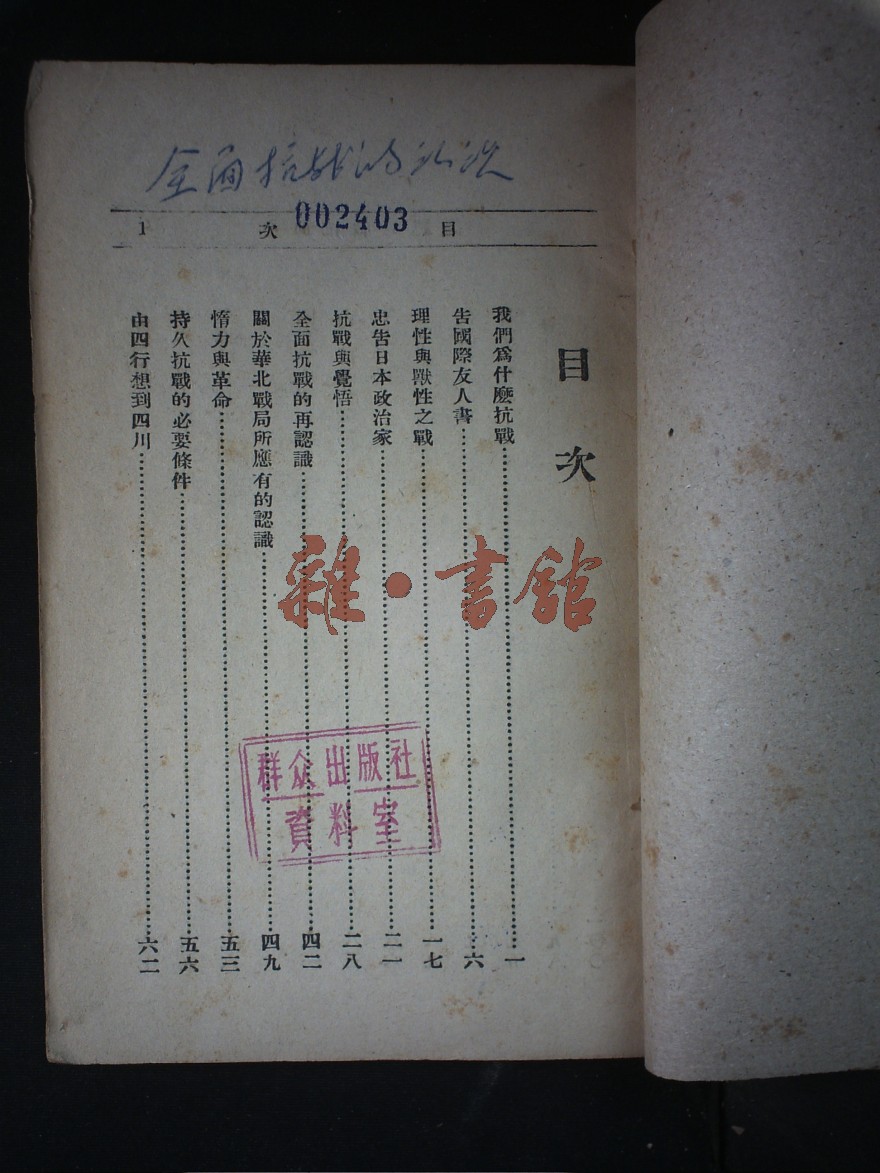 全面抗战的认识
002403
目 次 1
目次
我們爲什麽抗戰……一
告國際友人書……六
理性與獸性之戰……一七
忠告日本政治家……二一
抗戰與覺悟……二八
全面抗戰的再認識……四二
關於華北戰局所應有的認識……四九
惰力與革命……五三
持久抗戰的必要條件……五六
由四行想到四川……六二
雜·書館
群众出版社
資料室